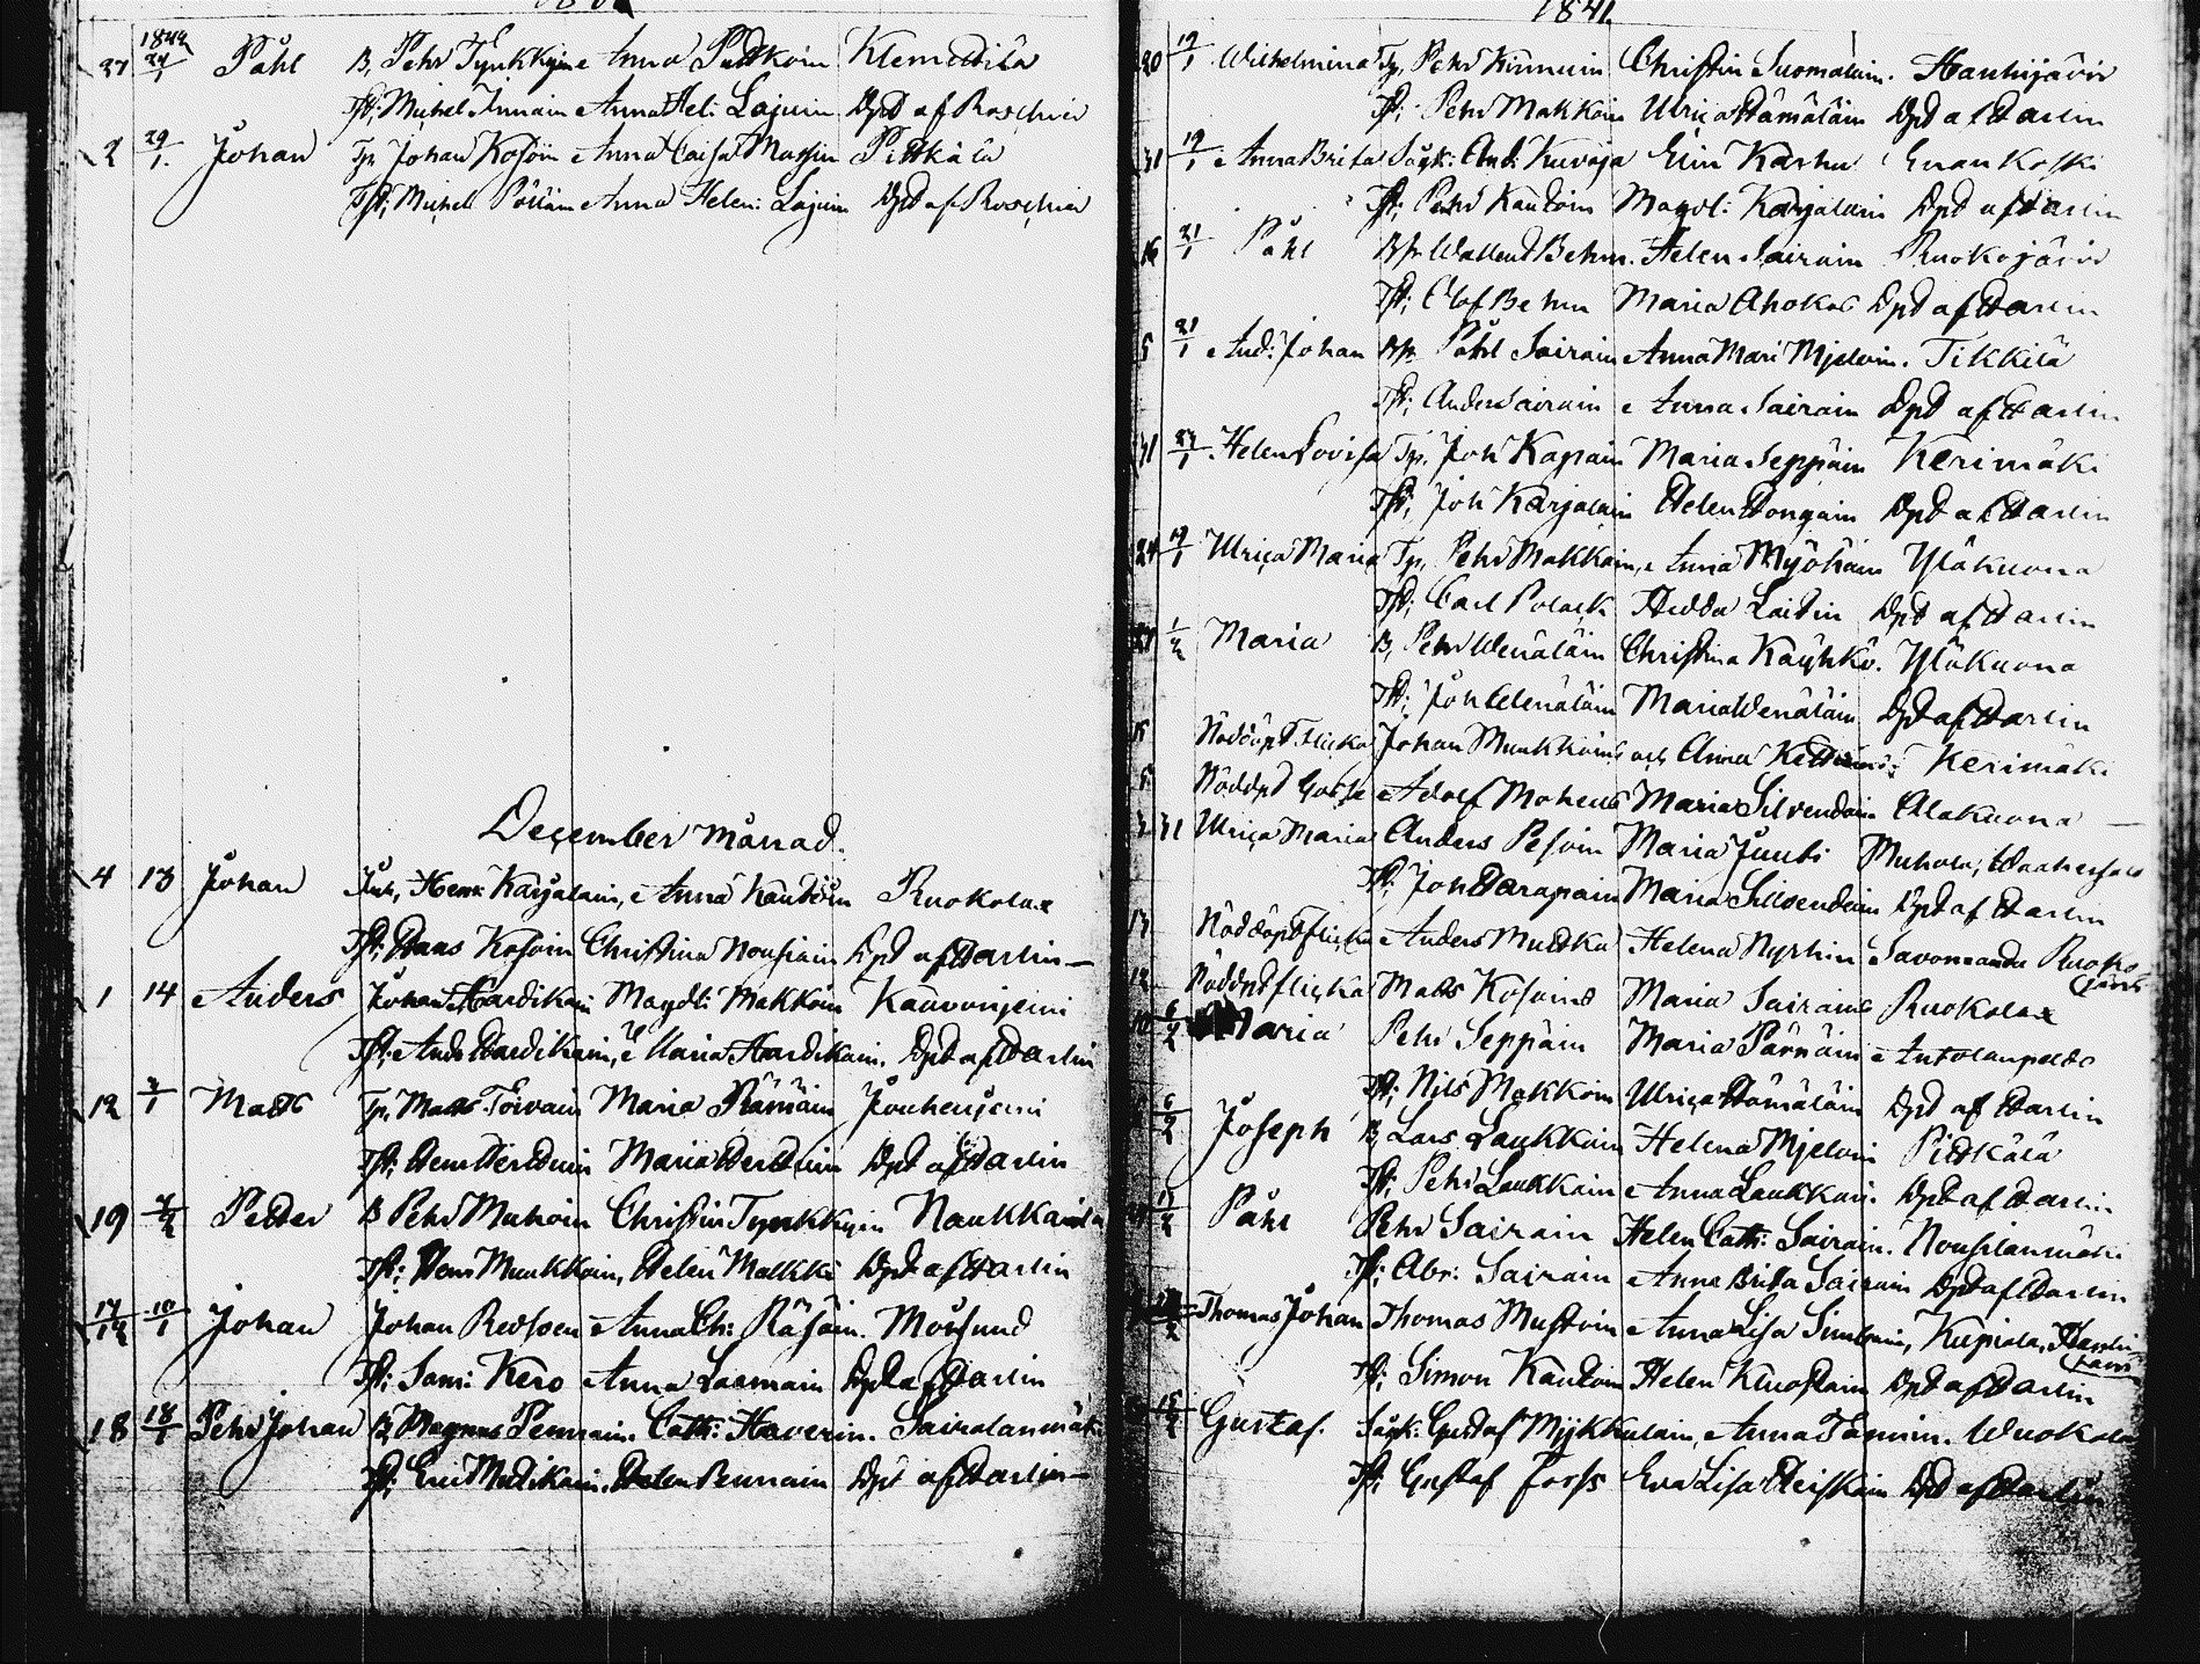 1842
27 24/1 Påhl B, Pehr Tynkkyin Anna Puttkoin Klemettilä
Tst; Michel Innain Anna Hel: Lajuin Dpt af Roschier
2 29/1 Johan Tp, Johan Kosoin Anna Caisa Massin Pittkälä
Tst; Michel Pöllän Anna Helen: Lajuin Dpt af Roschier
December Månad.
4 13 Johan Inh, Henr: Karjalain, Anna Kautoin Ruokolax
Tst; Staas Kosoin Christina Nousiain Dpt af Harlin—
1 14 Anders Johan Hardikain Magdl: Makkoin Kauvonijemi
Tst; And: Hardikain, Maria Hardikain. Dpt af Harlin
12 3/1 Matts Tp, Matts Toivain Maria Rämäin Jouhenjemi
Tst; Henr Herttuin Maria Herttuin Dpt af Harlin
19 4/2 Petter B Pehr Muhoin Christin Tynkkyin Naukkarila
Tst; Henr Munkkoin, Helen Malkki Dpt af Harlin
17/12 10/1 Johan Johan Revsoen Anna Ch: Räsäin. Monsund
Tst; Sam: Kero Anna Laamain Dpt af Harlin
18 18/1 Pehr Johan B, Magnus Pennain. Cath: Haverin. Sairalanmäki
Tst; Eric Matikain. Helen Pennain Dpt af Harlin—
1841.
20 19/1 Wilhelmina Tp, Pehr Kinnuin Christin Suomalain. Hauhijärvi
Tst; Pehr Makkoin Ulrica Hämäläin Dpt af Harlin
31 19/1 Anna Brita Sågk: And: Kuvaja Elin Karhu Enankoski
Tst; Pehr Kautoin Magdl: Karjalain Dpt af Harlin
16 21/1 Påhl Bp Wallent Behm. Helen Sairain Ruokojärvi
Tst; Olof Behm Maria Ahokas Dpt af Harlin
5 21/1 And: Johan Bp. Påhl Sairain Anna Mari Mjeloin. Tikkilä
Tst; Anders Sairain Anna Sairain Dpt af Harlin
31 27/1 Helen Lovisa Tp. Joh Kapain Maria Seppäin Kerimäki
Tst; Joh Karjalain Helen Hongain Dpt af Harlin
24 19/1 Ulrica Maria Tp, Pehr Makkoin, Anna Myöhäin Yläkuona
Tst; Carl Polack Hedda Laitin Dpt af Harlin
27 1/2 Maria B, Pehr Wenäläin Christina Käyhkö. Yläkuona
Tst; Joh Wenäläin Maria Wenäläin Dpt af Harlin
15 Nöddöpt Flicka Johan Munkkoins och Anna Kerimäki
5 Nöddpt Gosse Adolf Mohells Maria Silvendoin Alakuona —
3 31 Ulrica Maria Anders Pesoin Maria Juuti Muhola,
Tst; Joh Harapain Maria Silvendoin Dpt af Harlin
17 Nöddöpt flicka Anders Mustka Helena Nyrhin Savonranda Ruokojärvi
12 Nöddpt flicka Matts Kosoins Maria Sairains Ruokolax
10 6/2 Maria Pehr Seppäin Maria Pärnäin Antolanpelto
Tst; Nils Makkoin Ulrica Hämäläin Dpt af Harlin
6/2 Joseph B, Lars Laukkain Helena Mjeloin Pittkälä
Tst; Pehr Laukkain Anna Laukkain. Dpt af Harlin
13/2 Påhl Pehr Sairain Helen Cath: Sairain. Nousilanmäki
Tst; Abr: Sairain Anna Brita Sairain Dpt af Harlin
Thomas Johan Thomas Mustoin Anna Lisa Simtuin, Kupiala,
Tst; Simon Kautoin Helen Kuostain Dpt af Harlin
15/2 Gustaf. Sågk: Gustaf Mykkulain, Anna Tannin. Wuokala
Tst; Gustaf Forss Eva Lisa Heiskain Dpt af Harlin